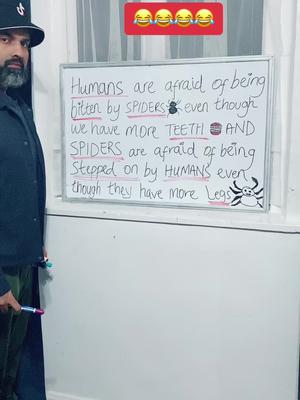 Humans are afraid of being
bitten by SPIDERS even though
we have more TEETH AND
SPIDERS are afraid of being
Stepped on by HUMANS even
though they have more Legs